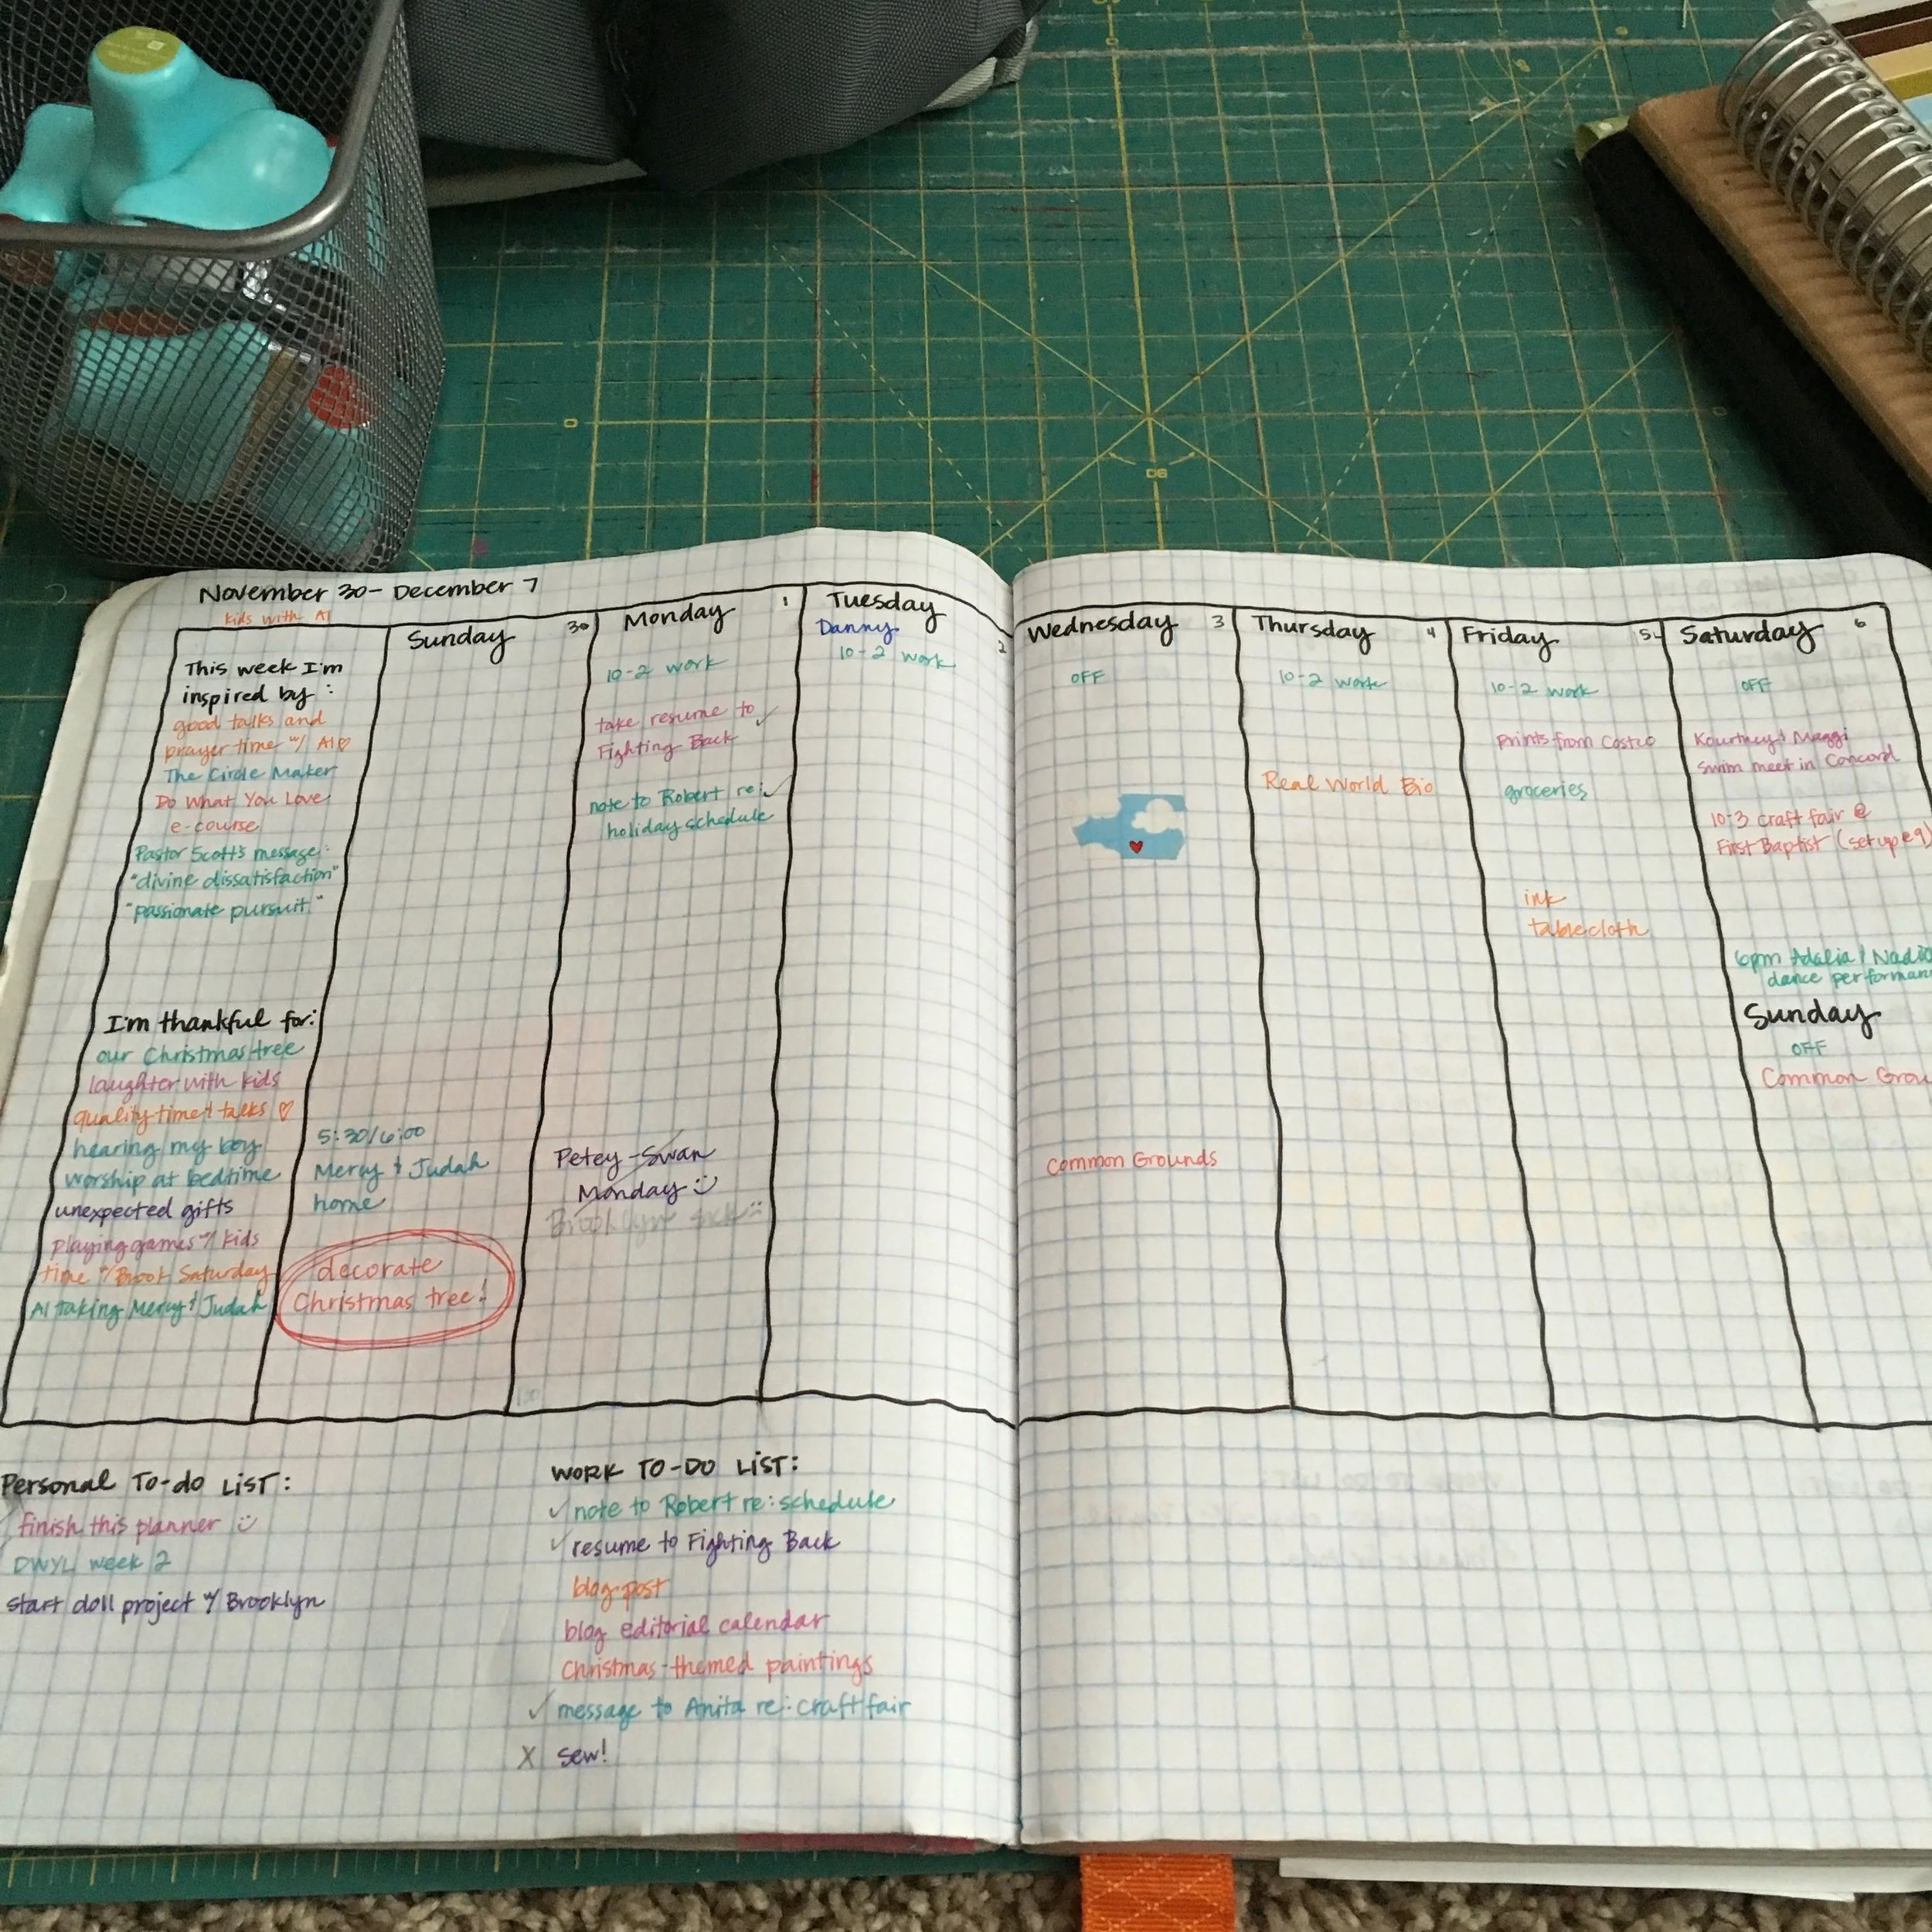 November 30 - December 7
kids with Al
This week I'm
inspired by:
good talks and
prayer time w/ Al ♡
The Circle Maker
Do What You Love
e-course
Pastor Scott's message:
"divine dissatisfaction"
"passionate pursuit"
I'm thankful for:
our Christmas tree
laughter with kids
quality time & talks ♡
hearing my boy
worship at bedtime
unexpected gifts
playing games w/ kids
time w/ Brook Saturday
Al taking Mercy & Judah
Sunday 30
5:30/6:00
Mercy & Judah
home
decorate
Christmas tree!
Monday 1
10-2 work
take resume to ✓
Fighting Back
note to Robert re: ✓
holiday schedule
Petey-Swan
Monday :)
Brooklyn sick :(
Tuesday 2
Danny
10-2 work
Wednesday 3
OFF
Common Grounds
Thursday 4
10-2 work
Real World Bio
Friday 5
10-2 work
prints from Costco
groceries
ink
tablecloth
Saturday 6
OFF
Kourtney & Maggi
swim meet in Concord
10-3 craft fair @
First Baptist (setup @ 9)
6pm Adalia /
dance performan
Sunday
OFF
Common Grou
Personal To-do LIST:
finish this planner :)
DWYL week 2
start doll project w/ Brooklyn
WORK TO-DO LIST:
✓ note to Robert re: schedule
✓ resume to Fighting Back
blog post
blog editorial calendar
Christmas-themed paintings
✓ message to Anita re: craft fair
X sew!